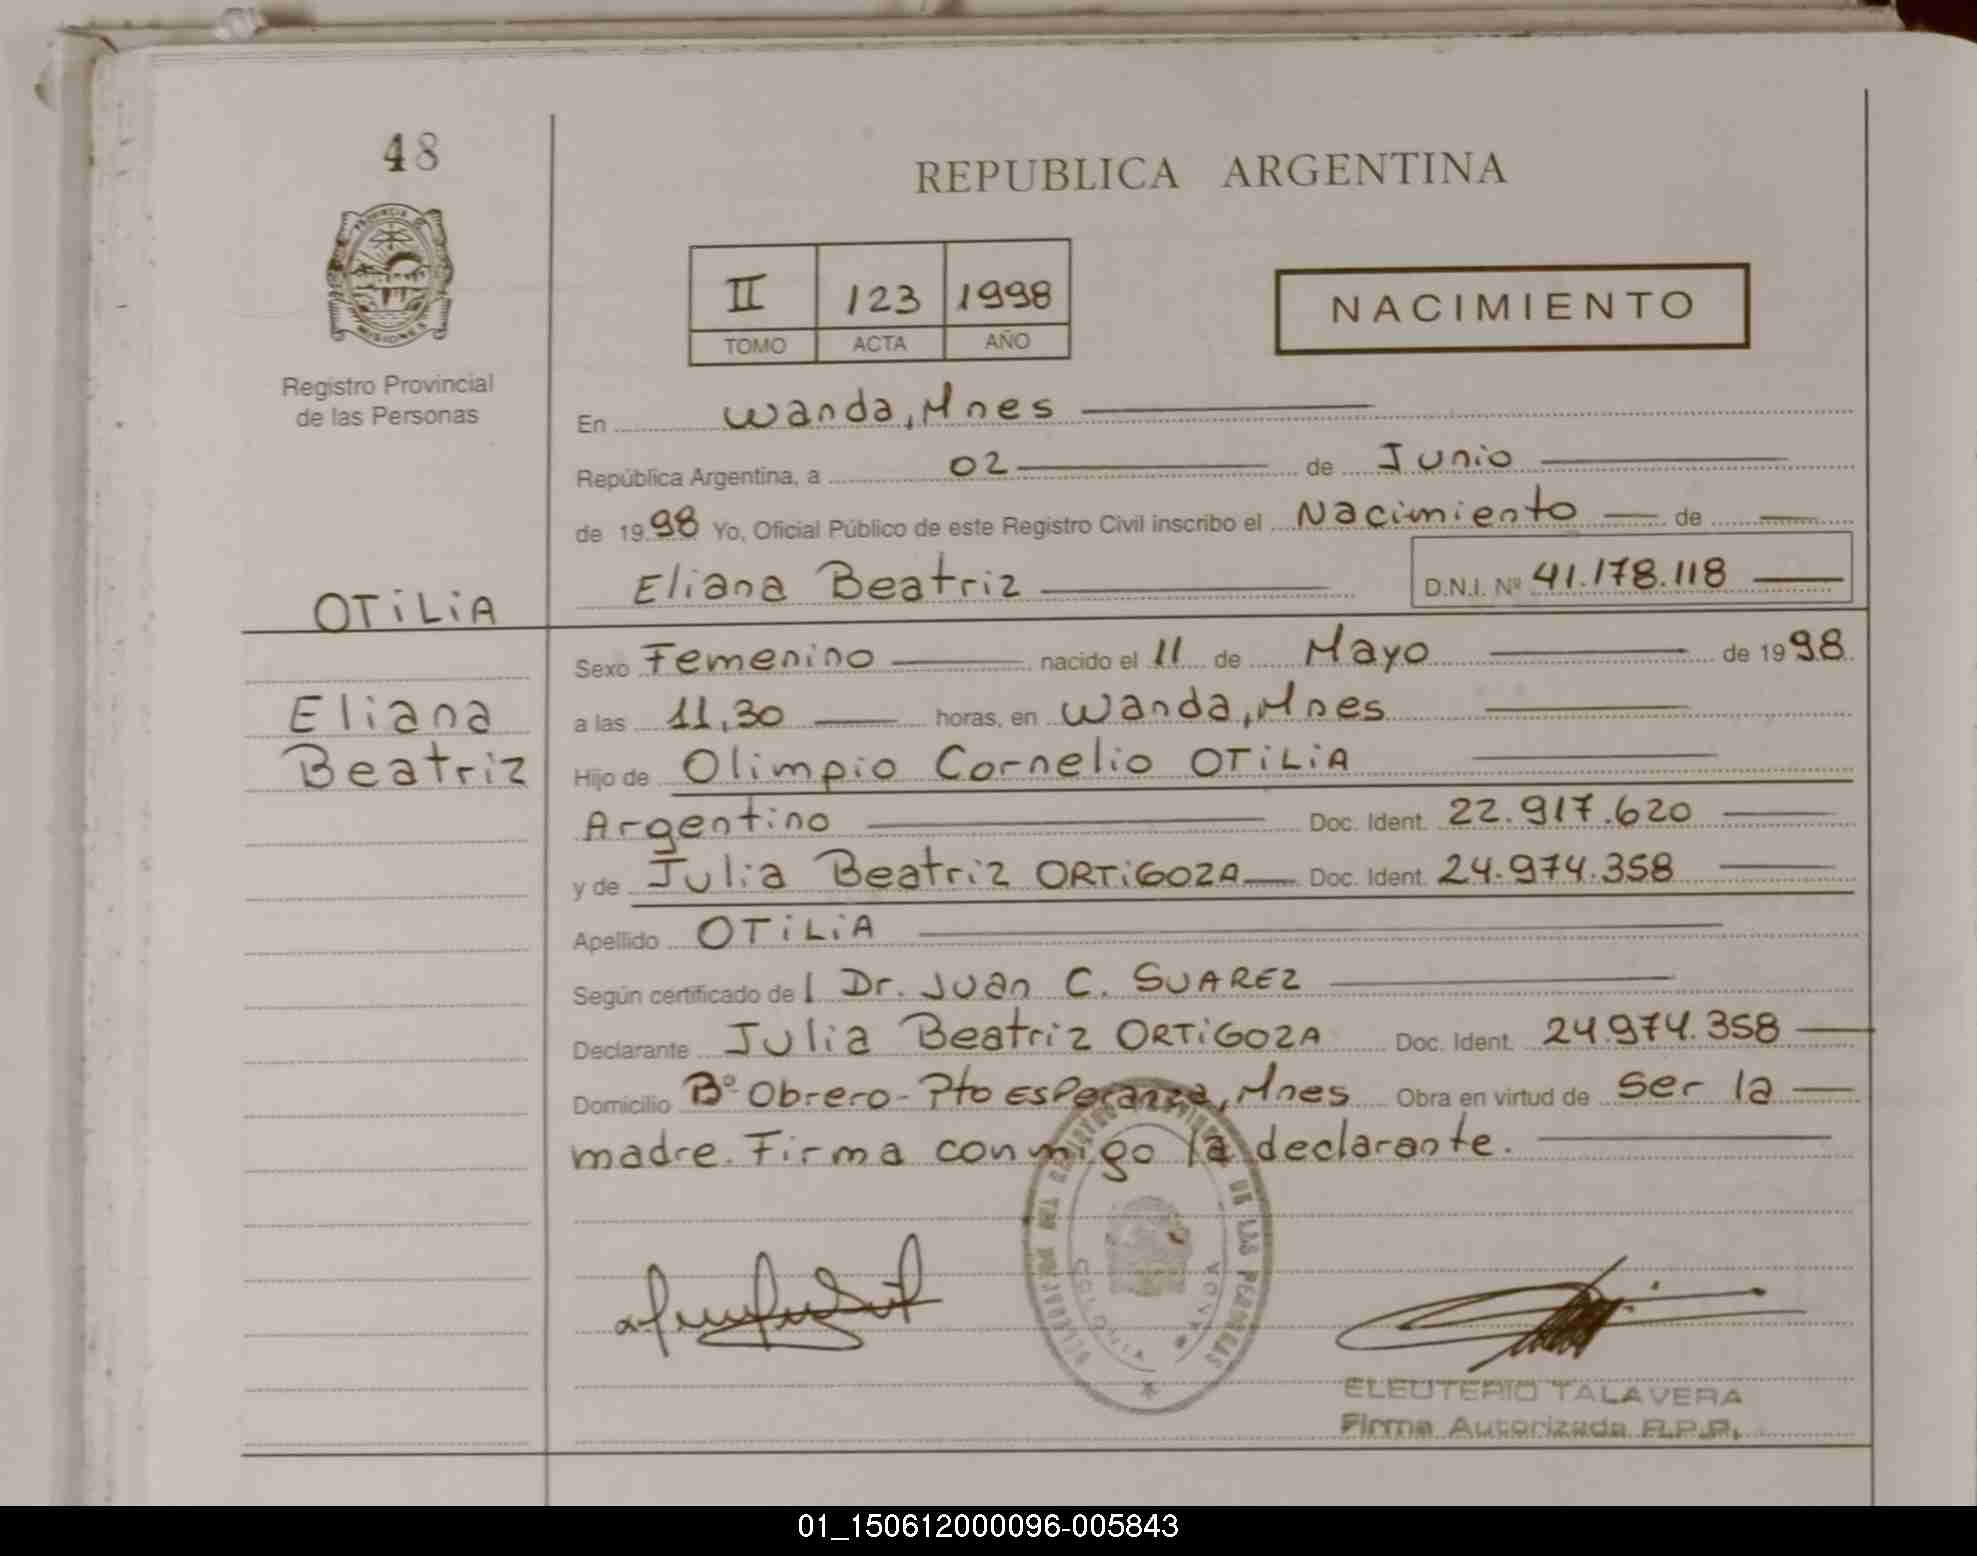 48
REPUBLICA ARGENTINA
PROVINCIA DE MISIONES
II 123 1998
TOMO ACTA AÑO
NACIMIENTO
Registro Provincial
de las Personas
En Wanda, Mnes
República Argentina, a 02 de Junio
de 1998 Yo, Oficial Público de este Registro Civil inscribo el Nacimiento de
Eliana Beatriz D.N.I. Nº 41.178.118
OTiLiA
Sexo Femenino nacido el 11 de Mayo de 1998
Eliana
a las 11,30 horas, en Wanda, Mnes
Beatriz
Hijo de Olimpio Cornelio OTiLiA
Argentino Doc. Ident. 22.917.620
y de Julia Beatriz ORTiGOZA Doc. Ident. 24.974.358
Apellido OTiLiA
Según certificado del Dr. Juan C. SUAREZ
Declarante Julia Beatriz ORTiGOZA Doc. Ident. 24.974.358
Domicilio Bº Obrero - Pto Esperanza, Mnes Obra en virtud de ser la
madre. Firma conmigo la declarante.
DE LAS PERSONAS
COLONIA WANDA
ELEUTERIO TALAVERA
Firma Autorizada R.P.P.
01_150612000096-005843